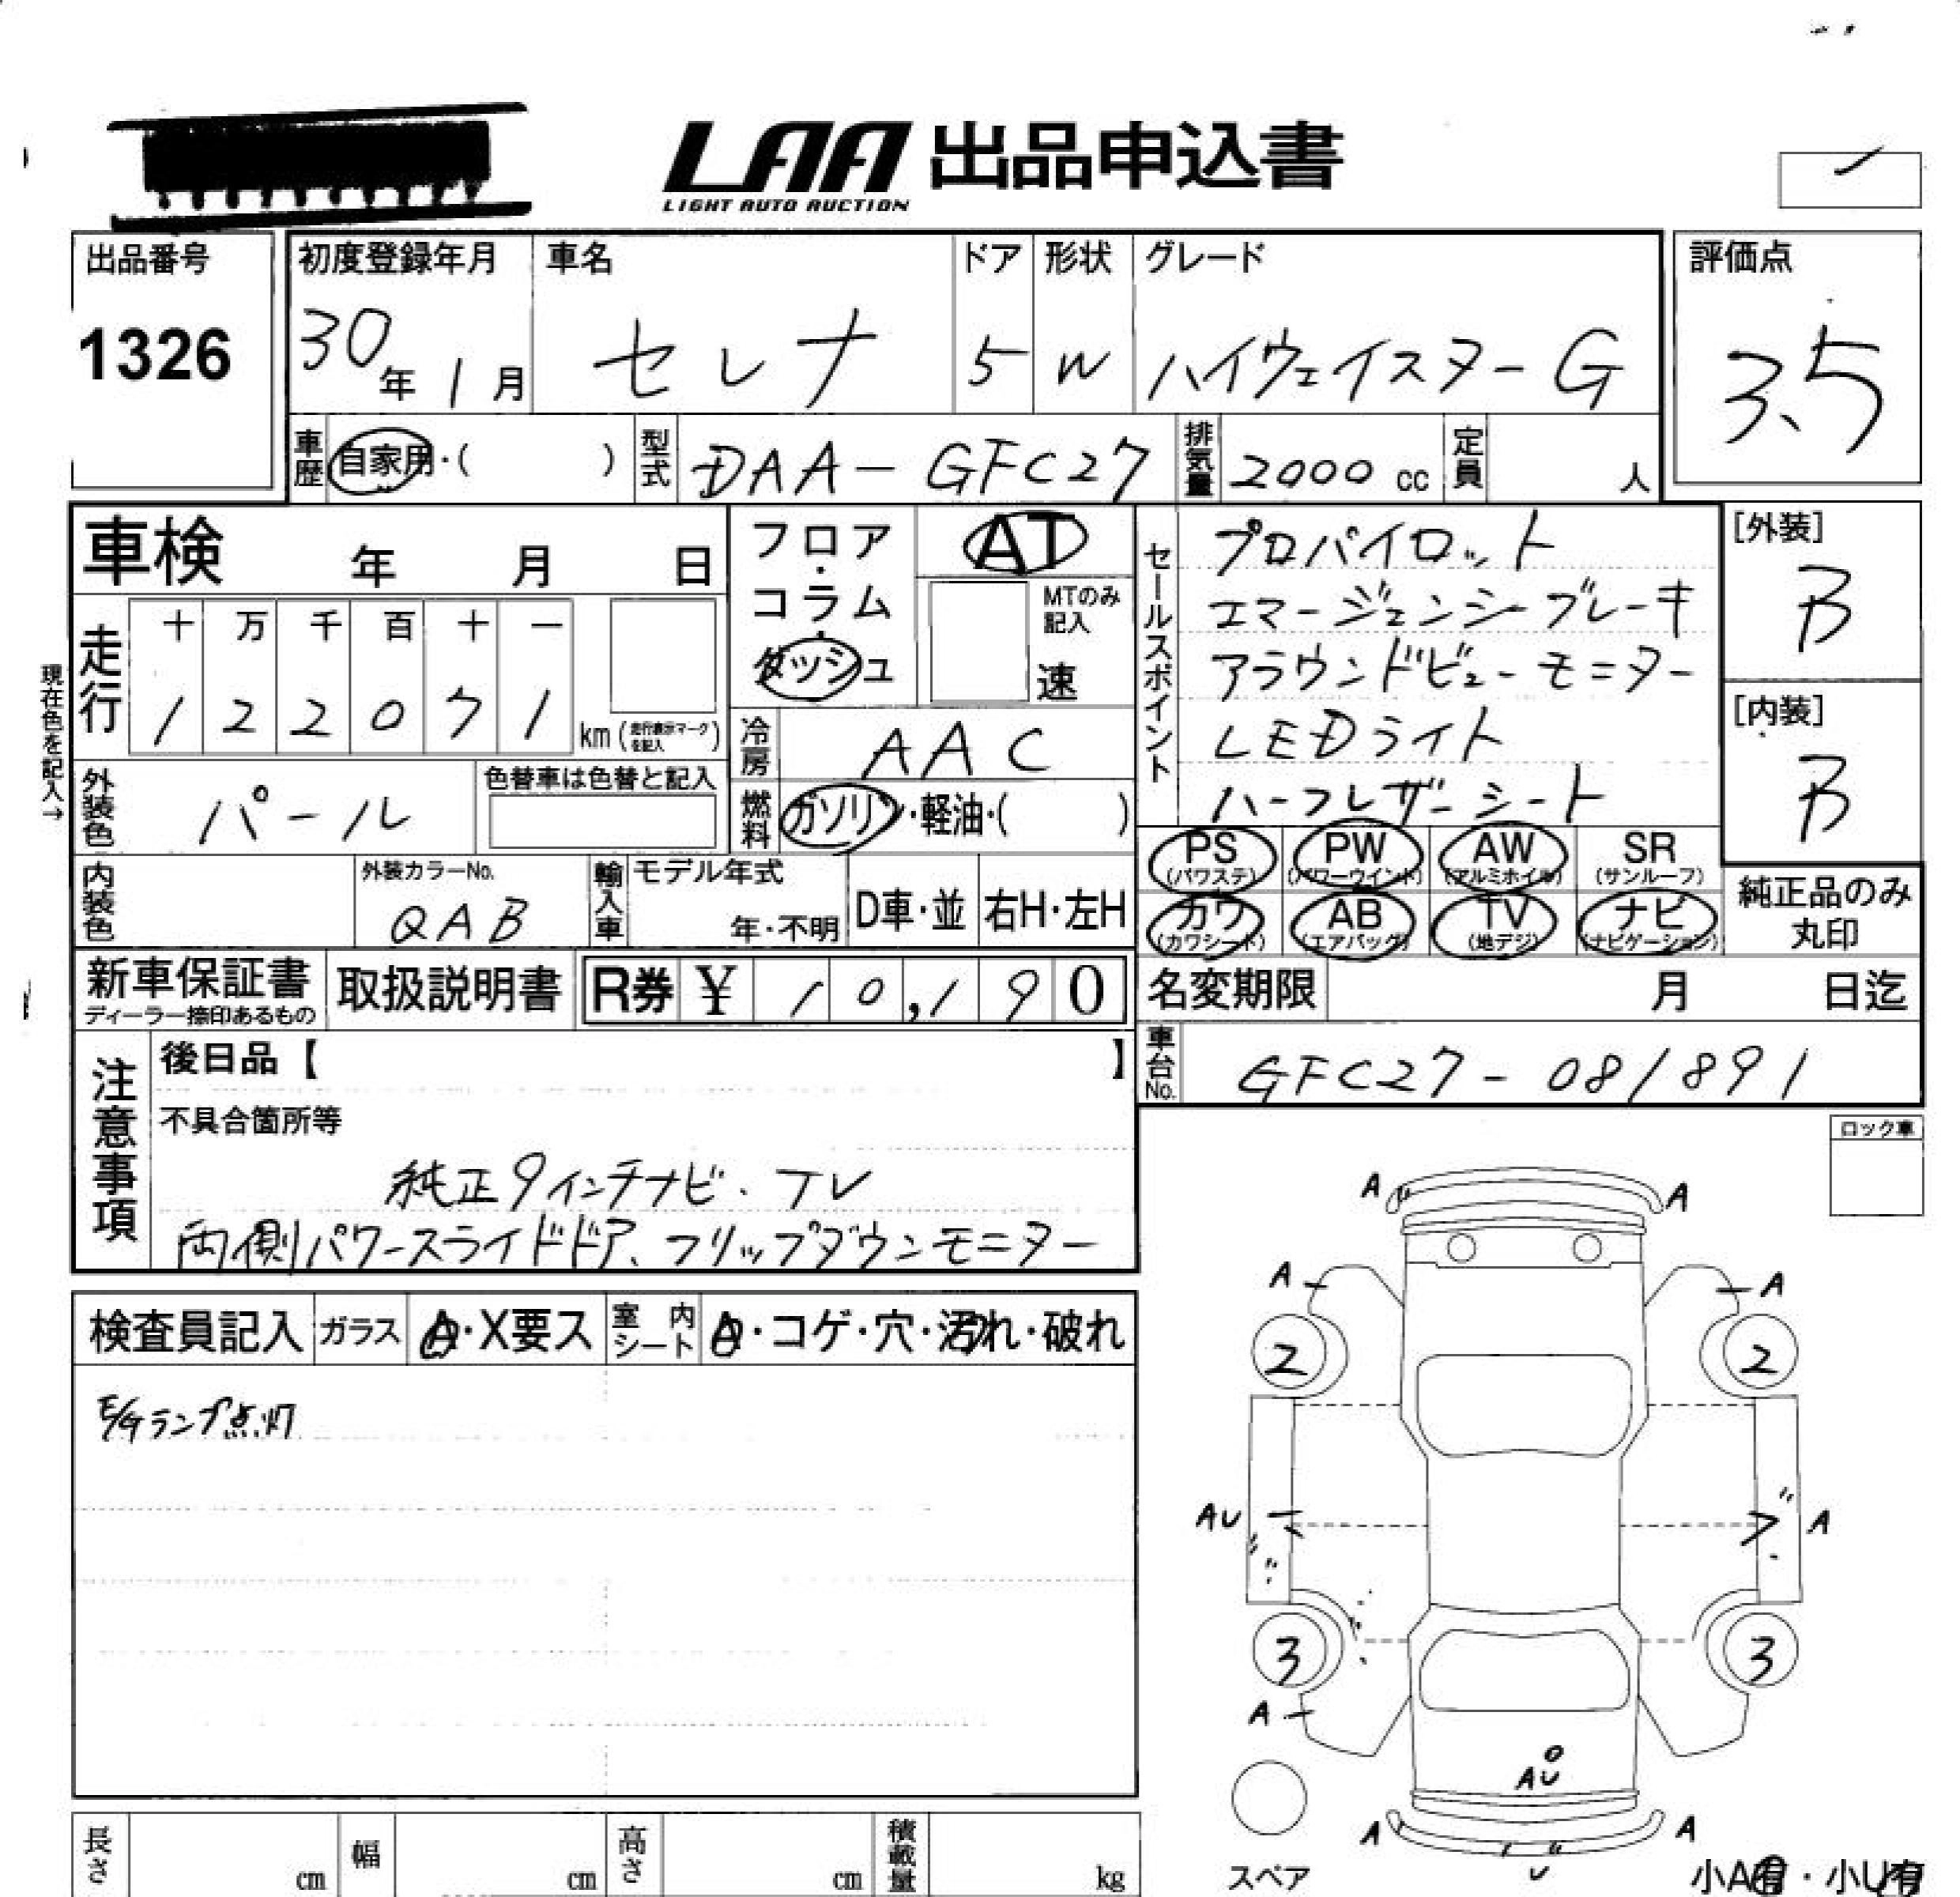 LAA 出品申込書
LIGHT AUTO AUCTION
出品番号
1326
初度登録年月
30年1月
車名
セレナ
ドア
5
形状
W
グレード
ハイウェイスターG
評価点
3.5
車歴
自家用・( )
型式
DAA-GFC27
排気量
2000 cc
定員
人
車検 年 月 日
走行
十 万 千 百 十 一
1 2 2 0 7 1
km(走行表示マークを記入)
現在色を記入→
外装色
パール
色替車は色替と記入
内装色
外装カラーNo.
QAB
フロア・コラム・ダッシュ
AT
MTのみ記入
速
冷房
AAC
燃料
ガソリン・軽油・( )
輸入車
モデル年式
年・不明
D車・並
右H・左H
セールスポイント
プロパイロット
エマージェンシーブレーキ
アラウンドビューモニター
LEDライト
ハーフレザーシート
[外装]
B
[内装]
B
PS (パワステ)
PW (パワーウインド)
AW (アルミホイル)
SR (サンルーフ)
カワ (カワシート)
AB (エアバッグ)
TV (地デジ)
ナビ (ナビゲーション)
純正品のみ丸印
新車保証書
ディーラー捺印あるもの
取扱説明書
R券 ¥ 10,190
名変期限 月 日迄
車台No.
GFC27-081891
注意事項
後日品【 】
不具合箇所等
純正9インチナビ、TV
両側パワースライドドア、フリップダウンモニター
検査員記入
ガラス
A・X要ス
室内シート
A・コゲ・穴・汚れ・破れ
E/Gランプ点灯
ロック車
A A
A A
2 2
AU A
3 3
A
AU
A A
U
スペア
小A有・小U有
長さ cm
幅 cm
高さ cm
積載量 kg